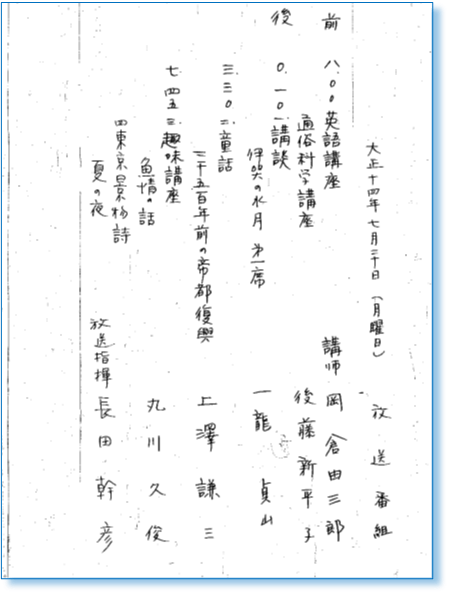 大正十四年七月二十日(月曜日) 放送番組
前 八.〇〇 英語講座 講師 岡倉由三郎
通俗科学講座 後藤新平子
後 〇.一〇 一.講談 一龍 貞山
伊賀の水月 第一席
三.三〇 二.童話
二千五百年前の帝都復興 上澤謙三
七.四五 三.趣味講座
魚情の話 丸川久俊
四東京景物詩
夏の夜 放送指揮 長田幹彦